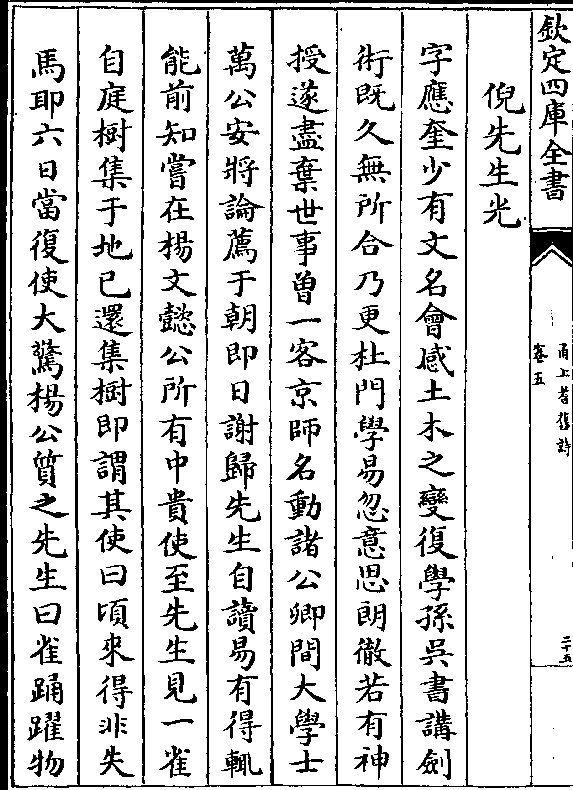 欽定四庫全書
甬上耆舊詩
卷五
二十五
倪先生光
字應奎少有文名會感土木之變復學孫吳書講劍
術既久無所合乃更杜門學易忽意思朗徹若有神
授遂盡棄世事曾一客京師名動諸公卿間大學士
萬公安將論薦于朝即日謝歸先生自讀易有得輒
能前知嘗在楊文懿公所有中貴使至先生見一雀
自庭樹集于地已還集樹即謂其使曰頃來得非失
馬耶六日當復使大驚楊公質之先生曰雀踊躍物